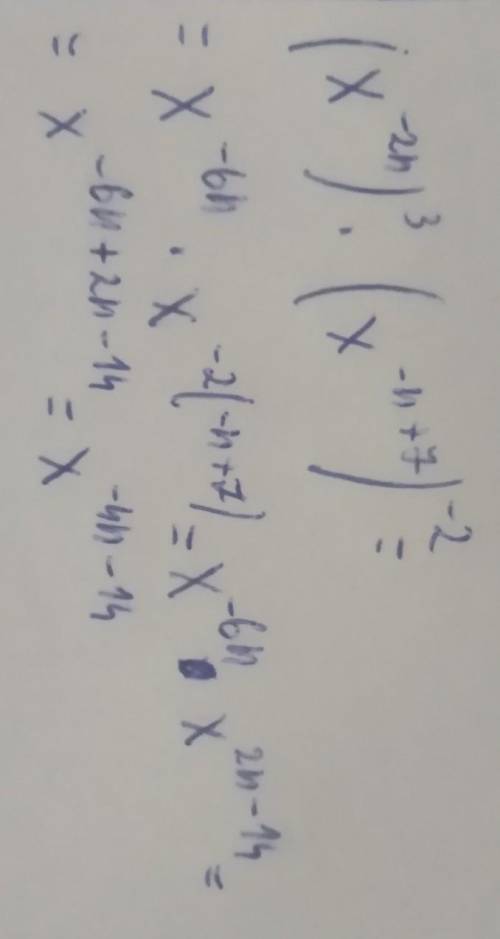 (x^{-2n})^3 · (x^{-n+7})^{-2} =
= x^{-6n} · x^{-2(-n+7)} = x^{-6n} · x^{2n-14} =
= x^{-6n+2n-14} = x^{-4n-14}